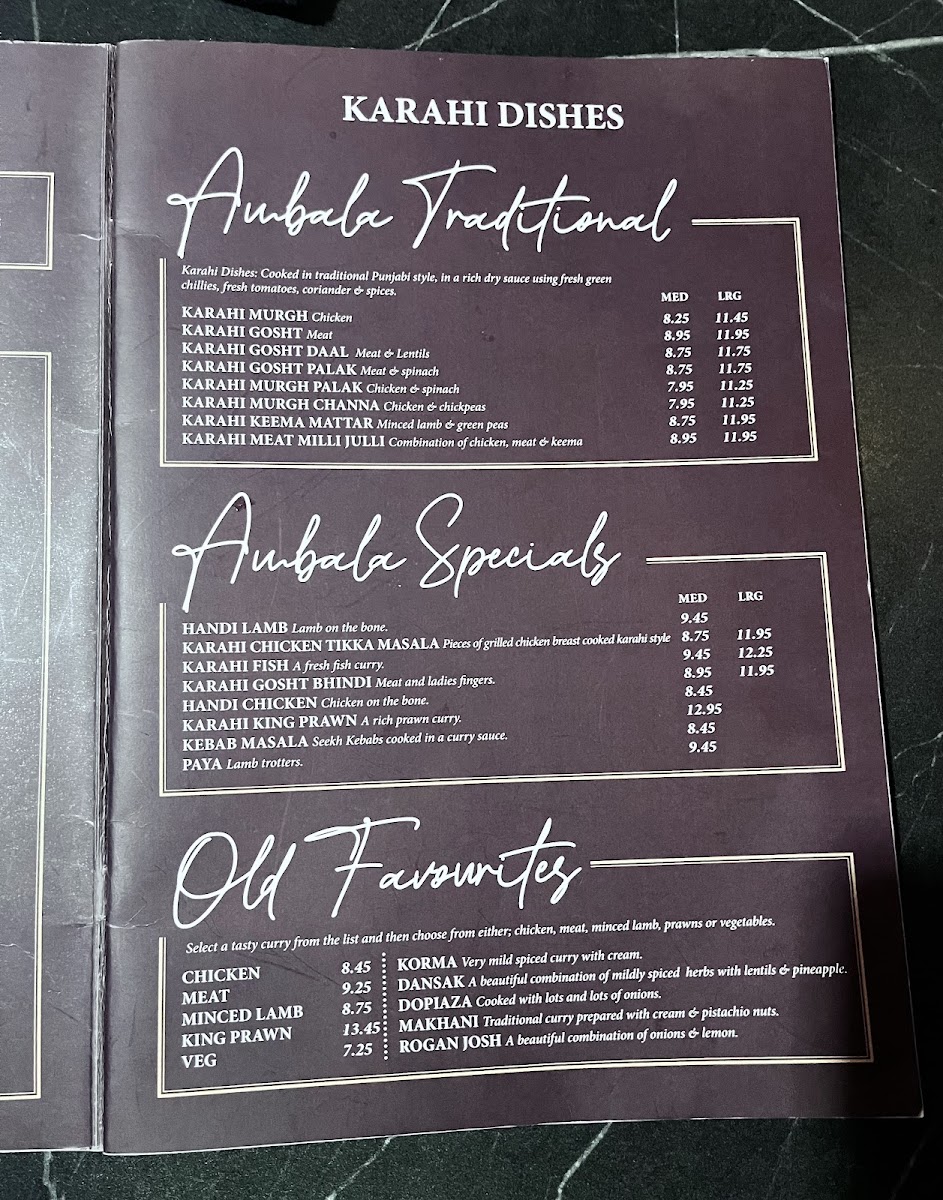 KARAHI DISHES
Ambala Traditional
Karahi Dishes: Cooked in traditional Punjabi style, in a rich dry sauce using fresh green
chillies, fresh tomatoes, coriander & spices.
MED LRG
KARAHI MURGH Chicken 8.25 11.45
KARAHI GOSHT Meat 8.95 11.95
KARAHI GOSHT DAAL Meat & Lentils 8.75 11.75
KARAHI GOSHT PALAK Meat & spinach 8.75 11.75
KARAHI MURGH PALAK Chicken & spinach 7.95 11.25
KARAHI MURGH CHANNA Chicken & chickpeas 7.95 11.25
KARAHI KEEMA MATTAR Minced lamb & green peas 8.75 11.95
KARAHI MEAT MILLI JULLI Combination of chicken, meat & keema 8.95 11.95
Ambala Specials
MED LRG
HANDI LAMB Lamb on the bone. 9.45
KARAHI CHICKEN TIKKA MASALA Pieces of grilled chicken breast cooked karahi style 8.75 11.95
KARAHI FISH A fresh fish curry. 9.45 12.25
KARAHI GOSHT BHINDI Meat and ladies fingers. 8.95 11.95
HANDI CHICKEN Chicken on the bone. 8.45
KARAHI KING PRAWN A rich prawn curry. 12.95
KEBAB MASALA Seekh Kebabs cooked in a curry sauce. 8.45
PAYA Lamb trotters. 9.45
Old Favourites
Select a tasty curry from the list and then choose from either; chicken, meat, minced lamb, prawns or vegetables.
CHICKEN 8.45
MEAT 9.25
MINCED LAMB 8.75
KING PRAWN 13.45
VEG 7.25
KORMA Very mild spiced curry with cream.
DANSAK A beautiful combination of mildly spiced herbs with lentils & pineapple.
DOPIAZA Cooked with lots and lots of onions.
MAKHANI Traditional curry prepared with cream & pistachio nuts.
ROGAN JOSH A beautiful combination of onions & lemon.